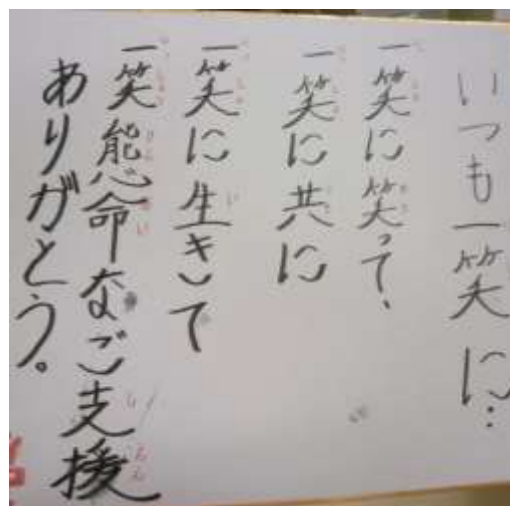 いつも一笑に…
一笑に笑って、
一笑に共に
一笑に生きて
一笑態命なご支援
ありがとう。